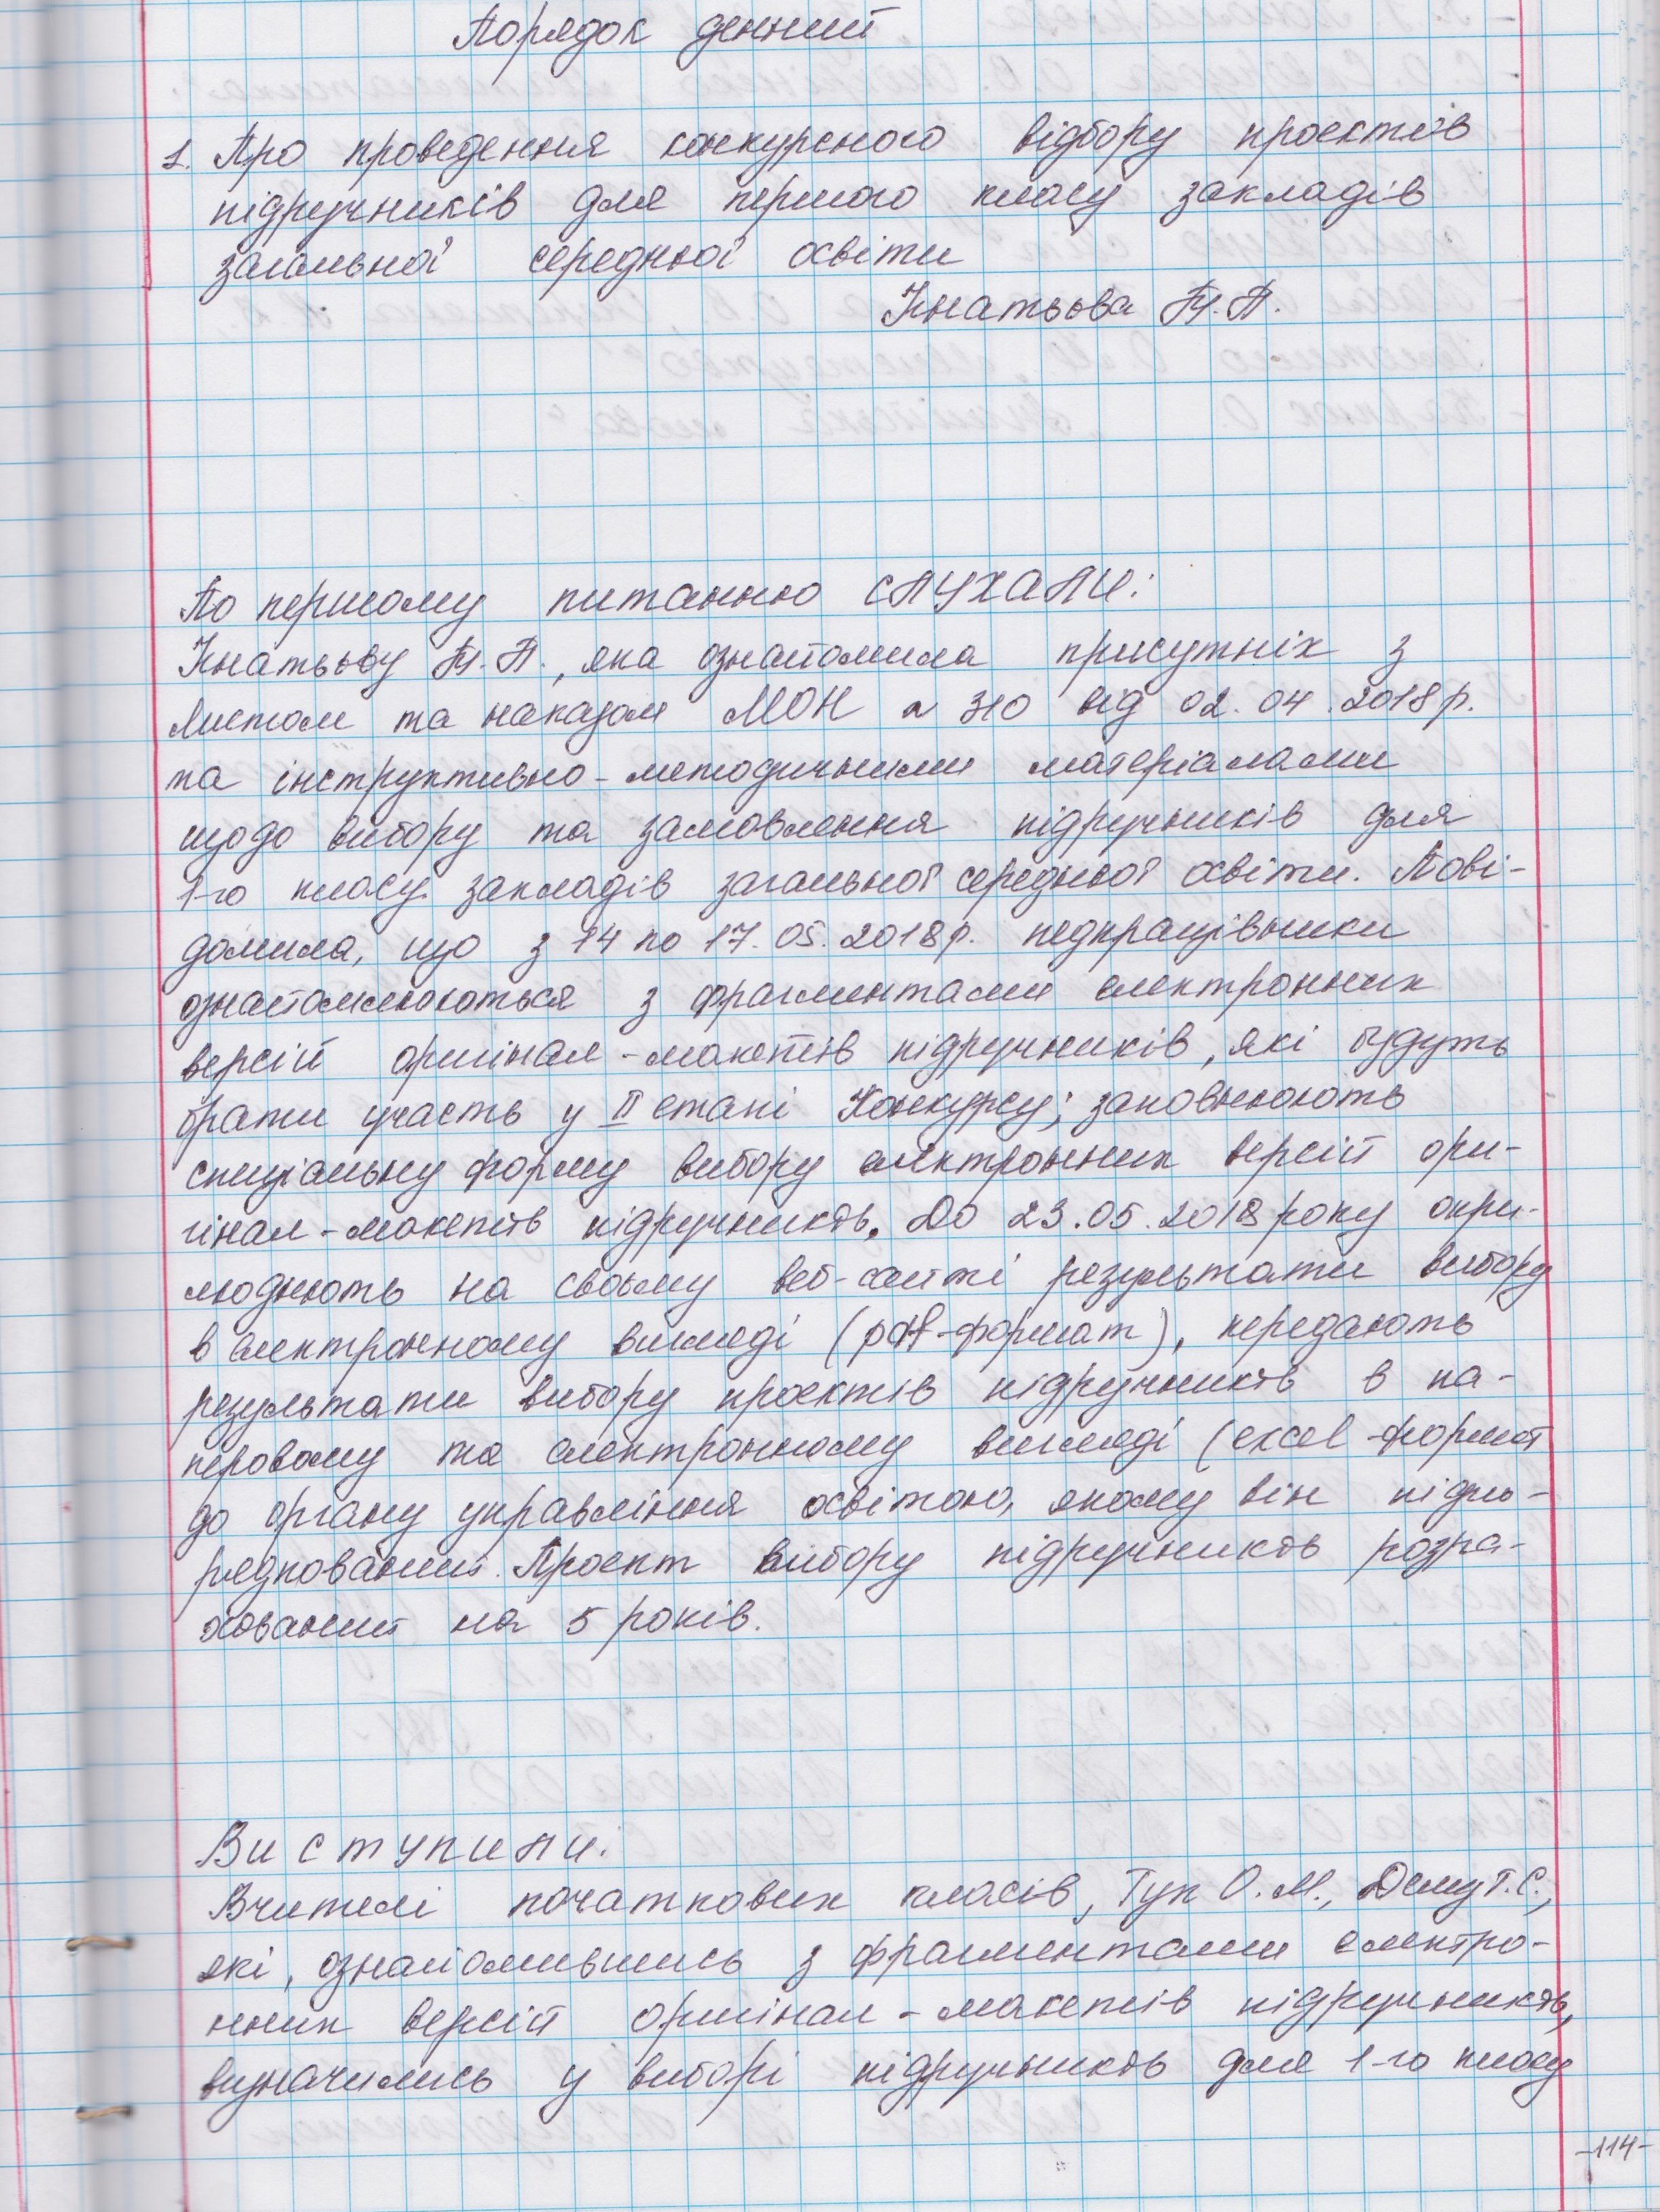 Порядок денний
1. Про проведення конкурсного відбору проектів
підручників для першого класу закладів
загальної середньої освіти
Ігнатьєва Т.П.
По першому питанню СЛУХАЛИ:
Ігнатьєву Т.П., яка ознайомила присутніх з
листом та наказом МОН № 310 від 02.04.2018р.
та інструктивно-методичними матеріалами
щодо вибору та замовлення підручників для
1-го класу закладів загальної середньої освіти. Пові-
домила, що з 14 по 17.05.2018р. педпрацівники
ознайомлюються з фрагментами електронних
версій оригінал-макетів підручників, які будуть
брати участь у II етапі Конкурсу; заповнюють
спеціальну форму вибору електронних версій ори-
гінал-макетів підручників. До 23.05.2018 року опри-
люднюють на своєму веб-сайті результати вибору
в електронному вигляді (pdf-формат), передають
результати вибору проектів підручників в па-
перовому та електронному вигляді (excel-формат
до органу управління освітою, якому він підпо-
рядкований. Проект вибору підручників розра-
хований на 5 років.
Виступили:
Вчителі початкових класів, Гук О.М., Т.С.,
які, ознайомившись з фрагментами електро-
нних версій оригінал-макетів підручників,
визначились у виборі підручників для 1-го класу
-114-